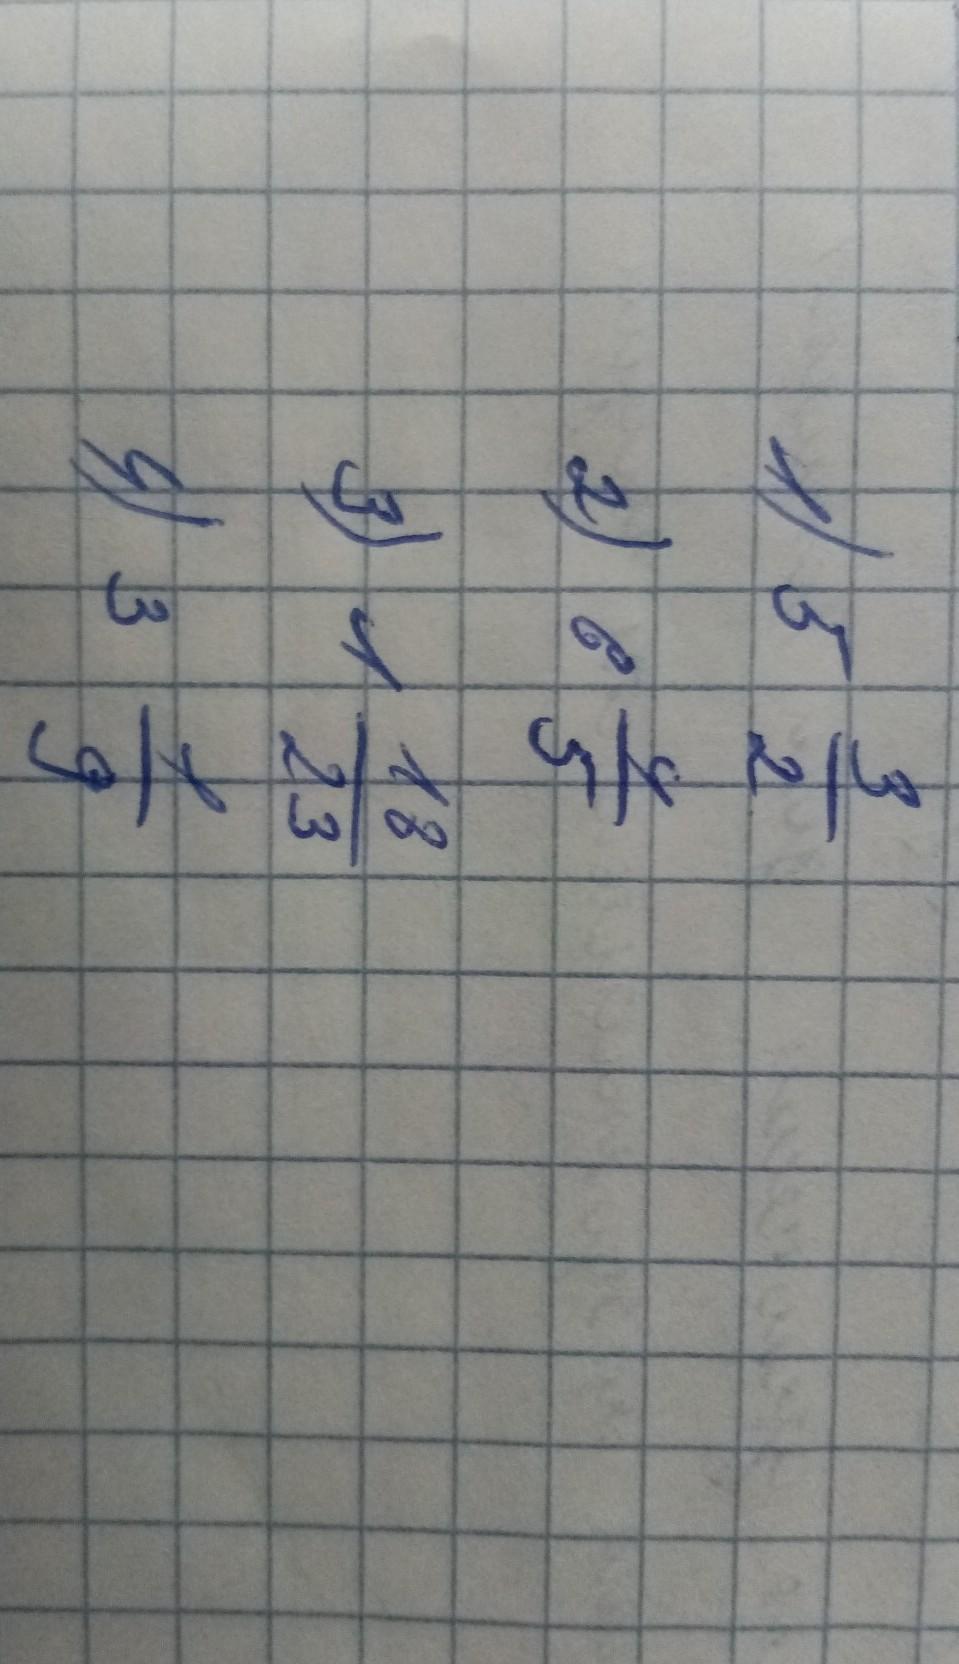 1) 5 3/2
2) 6 4/5
3) 1 18/23
4) 3 1/9